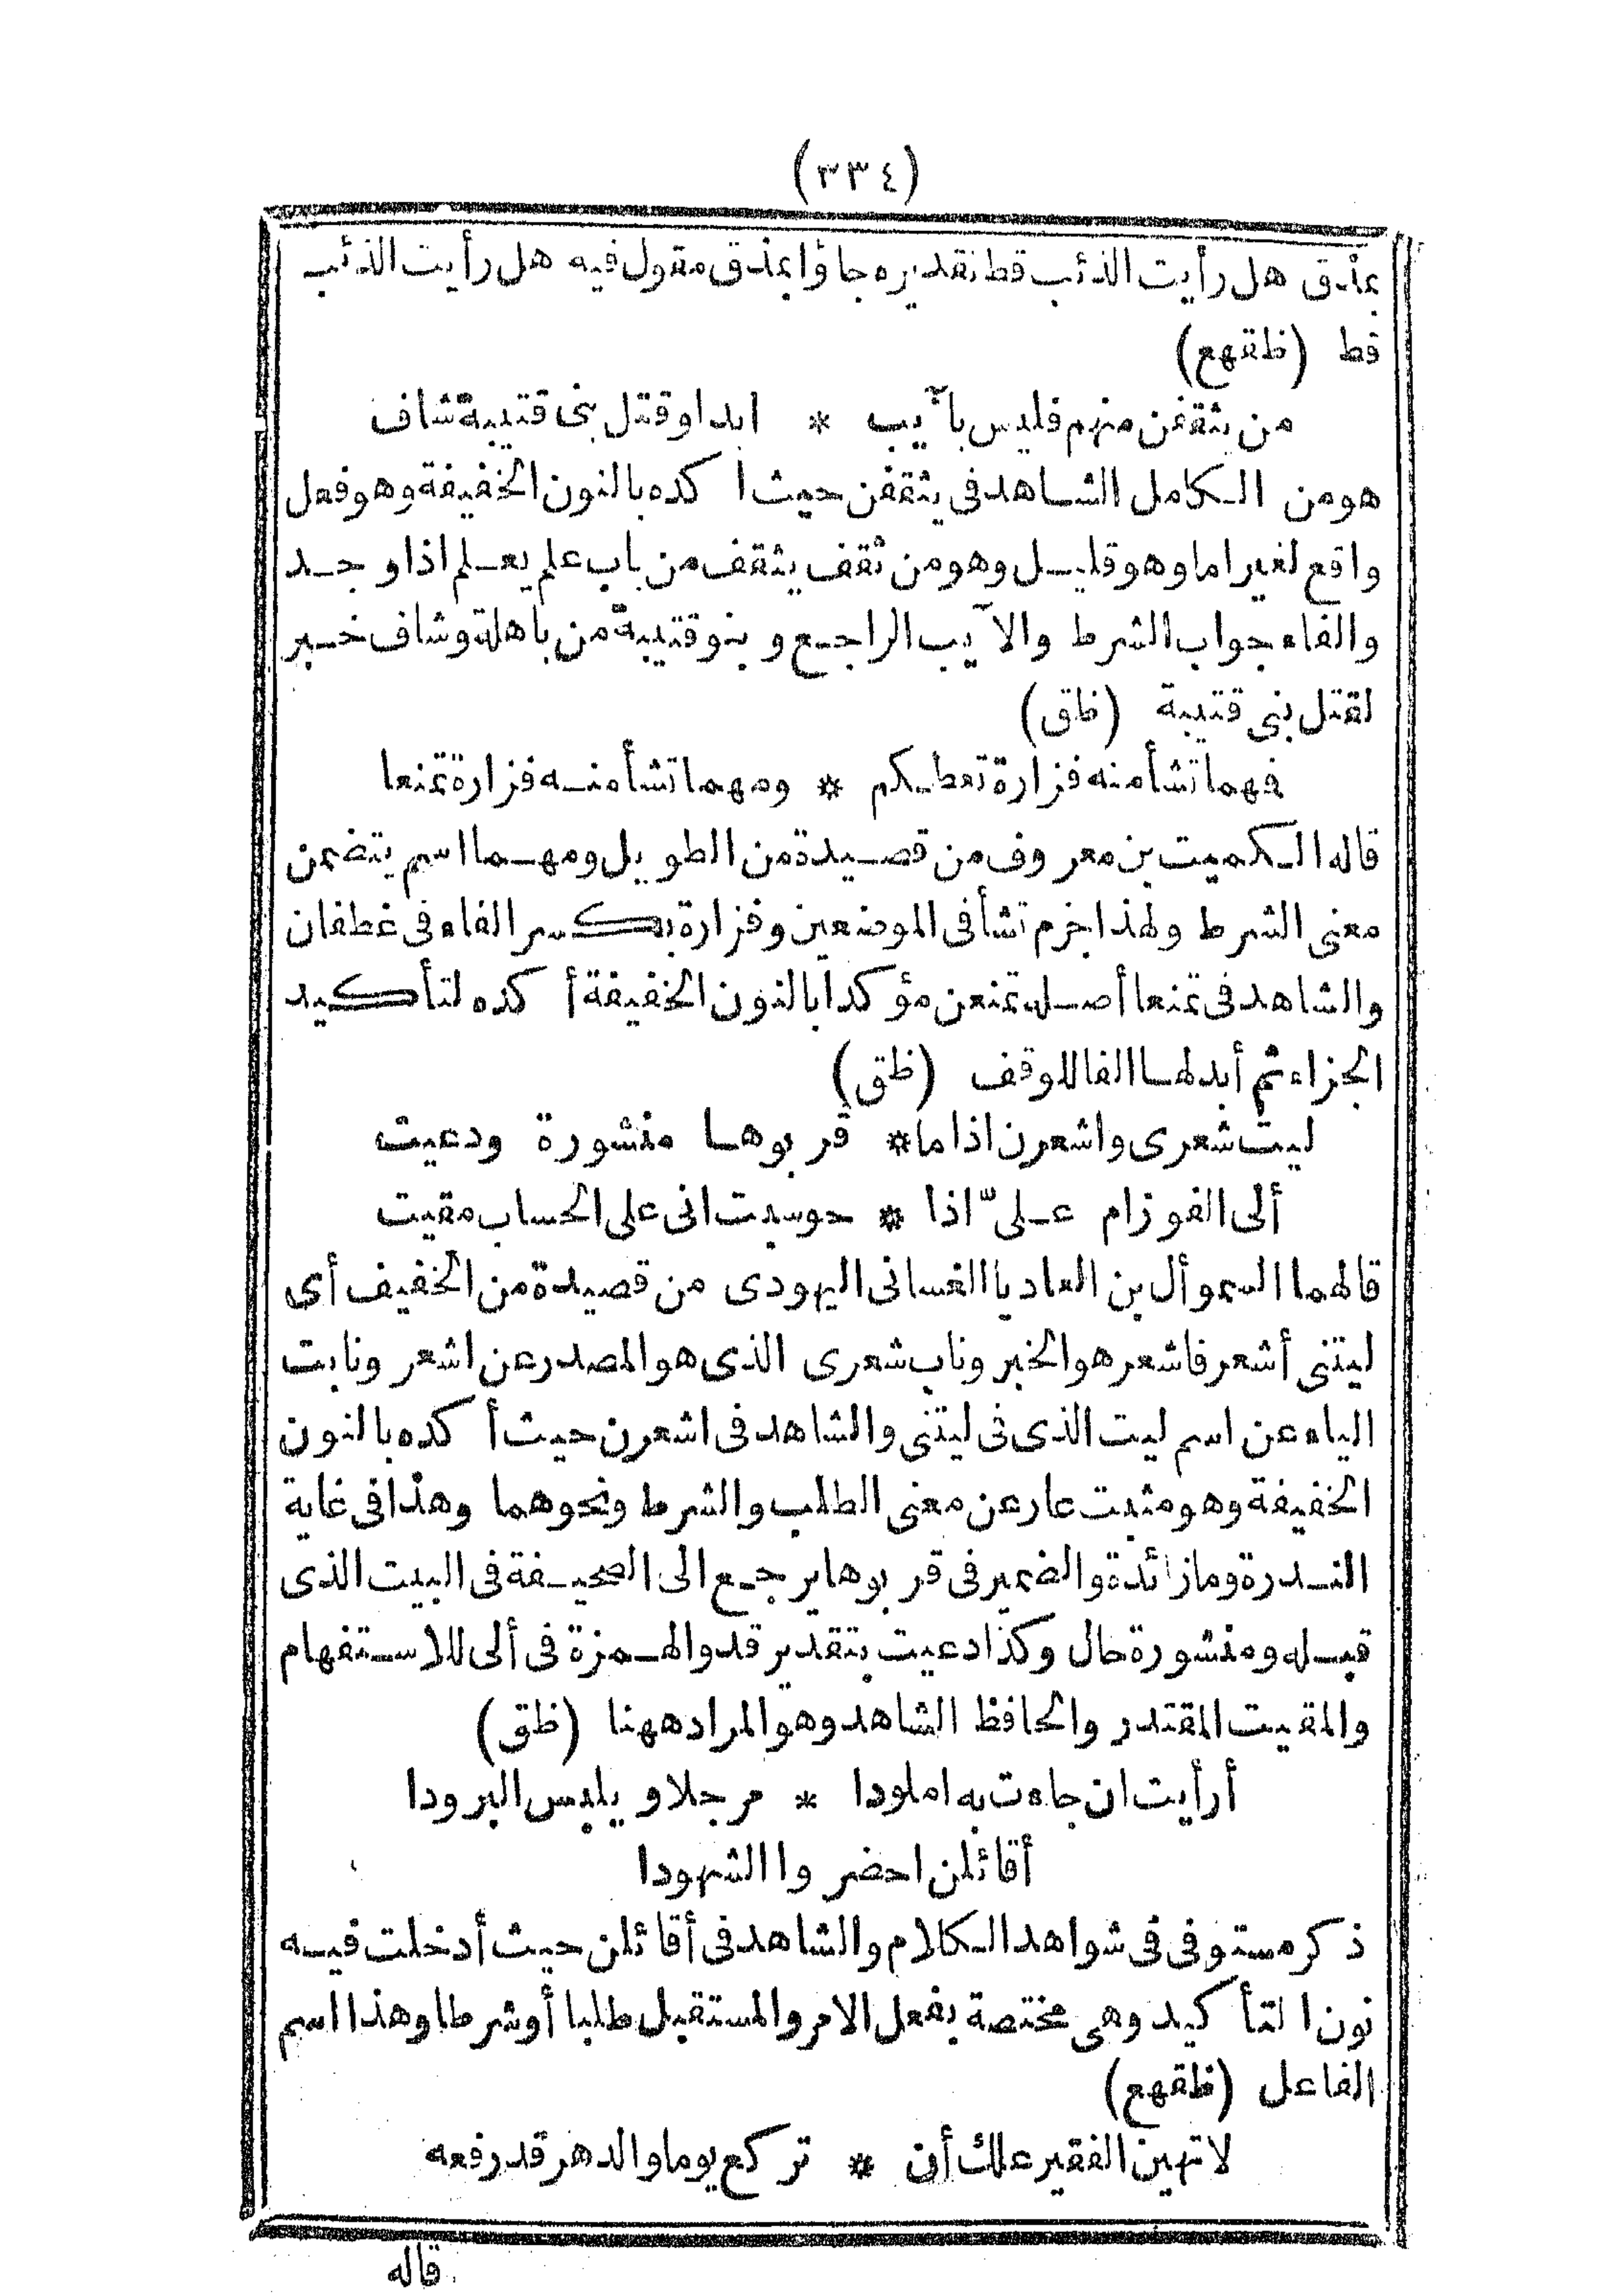 (٣٣٤)
بمذق هل رأيت الذئب قط تقديره جاؤا بمذق مقول فيه هل رأيت الذئب
قط (ظقهع)
من يثقفن منهم فليس بآيب * ابدا وقتل بنى قتيبة شاف
هو من الكامل الشاهد فى يثقفن حيث أكده بالنون الخفيفة وهو فعل
واقع لغير اما وهو قليل وهو من ثقف يثقف من باب علم يعلم اذا وجد
والفاء جواب الشرط والآيب الراجع وبنو قتيبة من باهلة وشاف خبر
لقتل بنى قتيبة (ظق)
فهما تشأ منه فزارة تعطكم * ومهما تشأ منه فزارة تمنعا
قاله الكميت بن معروف من قصيدة من الطويل ومهما اسم يتضمن
معنى الشرط ولهذا جزم تشأ فى الموضعين وفزارة بكسر الفاء فى غطفان
والشاهد فى تمنعا أصله تمنعن مؤكدا بالنون الخفيفة أكده لتأكيد
الجزاء ثم أبدلها الفا للوقف (ظق)
ليت شعرى واشعرن اذا ما * قربوها منشورة ودعيت
ألى الفوز ام علىّ اذا * حوسبت انى على الحساب مقيت
قالهما السموأل بن العاديا الغسانى اليهودى من قصيدة من الخفيف أى
ليتنى أشعر فاشعر هو الخبر وناب شعرى الذى هو المصدر عن اشعر ونابت
الياء عن اسم ليت الذى فى ليتنى والشاهد فى اشعرن حيث أكده بالنون
الخفيفة وهو مثبت عار عن معنى الطلب والشرط ونحوهما وهذا فى غاية
الندرة وما زائدة والضمير فى قربوها يرجع الى الصحيفة فى البيت الذى
قبله ومنشورة حال وكذا دعيت بتقدير قد والهمزة فى ألى للاستفهام
والمقيت المقتدر والحافظ الشاهد وهو المراد ههنا (ظق)
أرأيت ان جاءت به املودا * مرجلا ويلبس البرودا
أقائلن احضروا الشهودا
ذكر مستوفى فى شواهد الكلام والشاهد فى أقائلن حيث أدخلت فيه
نون التأكيد وهى مختصة بفعل الامر والمستقبل طلبا أو شرطا وهذا اسم
الفاعل (ظقهع)
لا تهين الفقير علك أن * تركع يوما والدهر قد رفعه
قاله